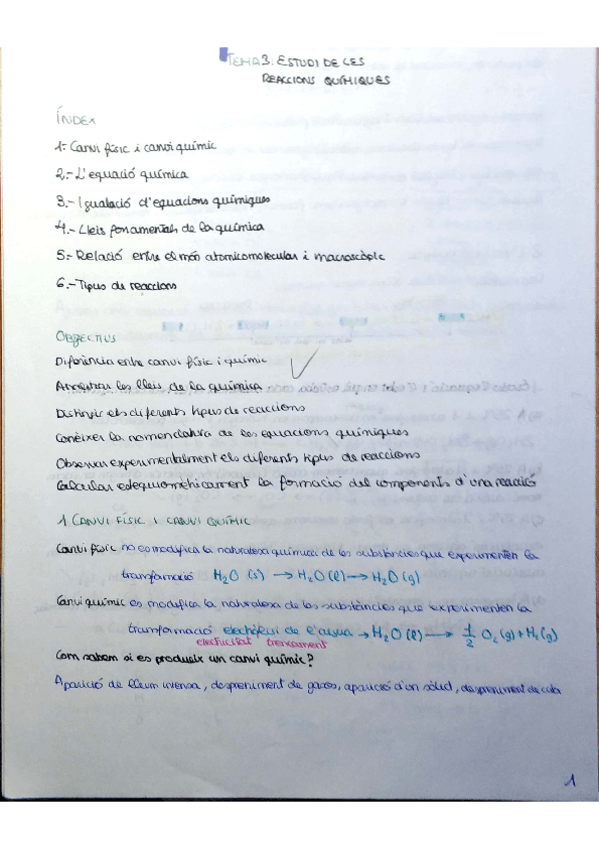 TEMA 3: ESTUDI DE LES
REACCIONS QUÍMIQUES
ÍNDEX
1.- Canvi físic i canvi químic
2.- L'equació química
3.- Igualació d'equacions químiques
4.- Lleis fonamentals de la química
5.- Relació entre el món atomicomolecular i macroscòpic
6.- Tipus de reaccions
OBJECTIUS
Diferència entre canvi físic i químic
les lleis de la química
Distingir els diferents tipus de reaccions
Conèixer la nomenclatura de les equacions químiques
Observar experimentalment els diferents tipus de reaccions
Calcular estequiomètricament la formació del components d'una reacció
1 CANVI FÍSIC I CANVI QUÍMIC
Canvi físic no es modifica la naturalesa química de les substàncies que experimenten la
transformació H₂O (s) → H₂O (l) → H₂O (g)
Canvi químic es modifica la naturalesa de les substàncies que experimenten la
transformació electròlisi de l'aigua → H₂O (l) → 1/2 O₂ (g) + H₂ (g)
electricitat trencament
Com sabem si es produeix un canvi químic?
Aparició de llum intensa, despreniment de gasos, aparició d'un sòlid, despreniment de
1